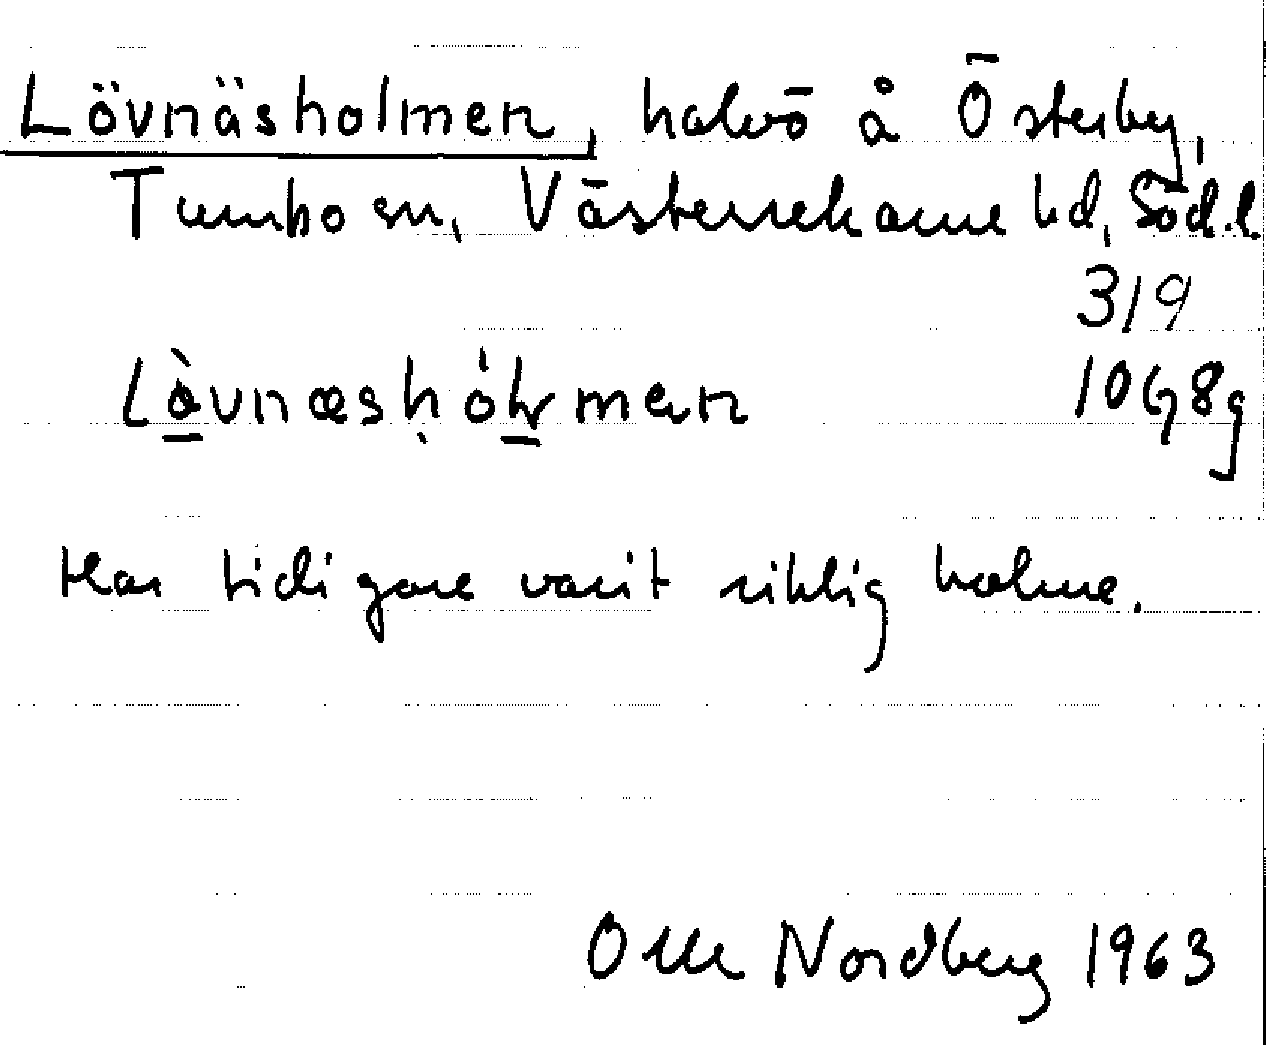 Lövnäsholmen, halvö å Österby,
Tumbo sn, Västerrekarne hd, Söd.l.
319
Lὸ̱vnæsḥólmen 10G8g
Har tidigare varit riktig holme.
Olle Nordberg 1963